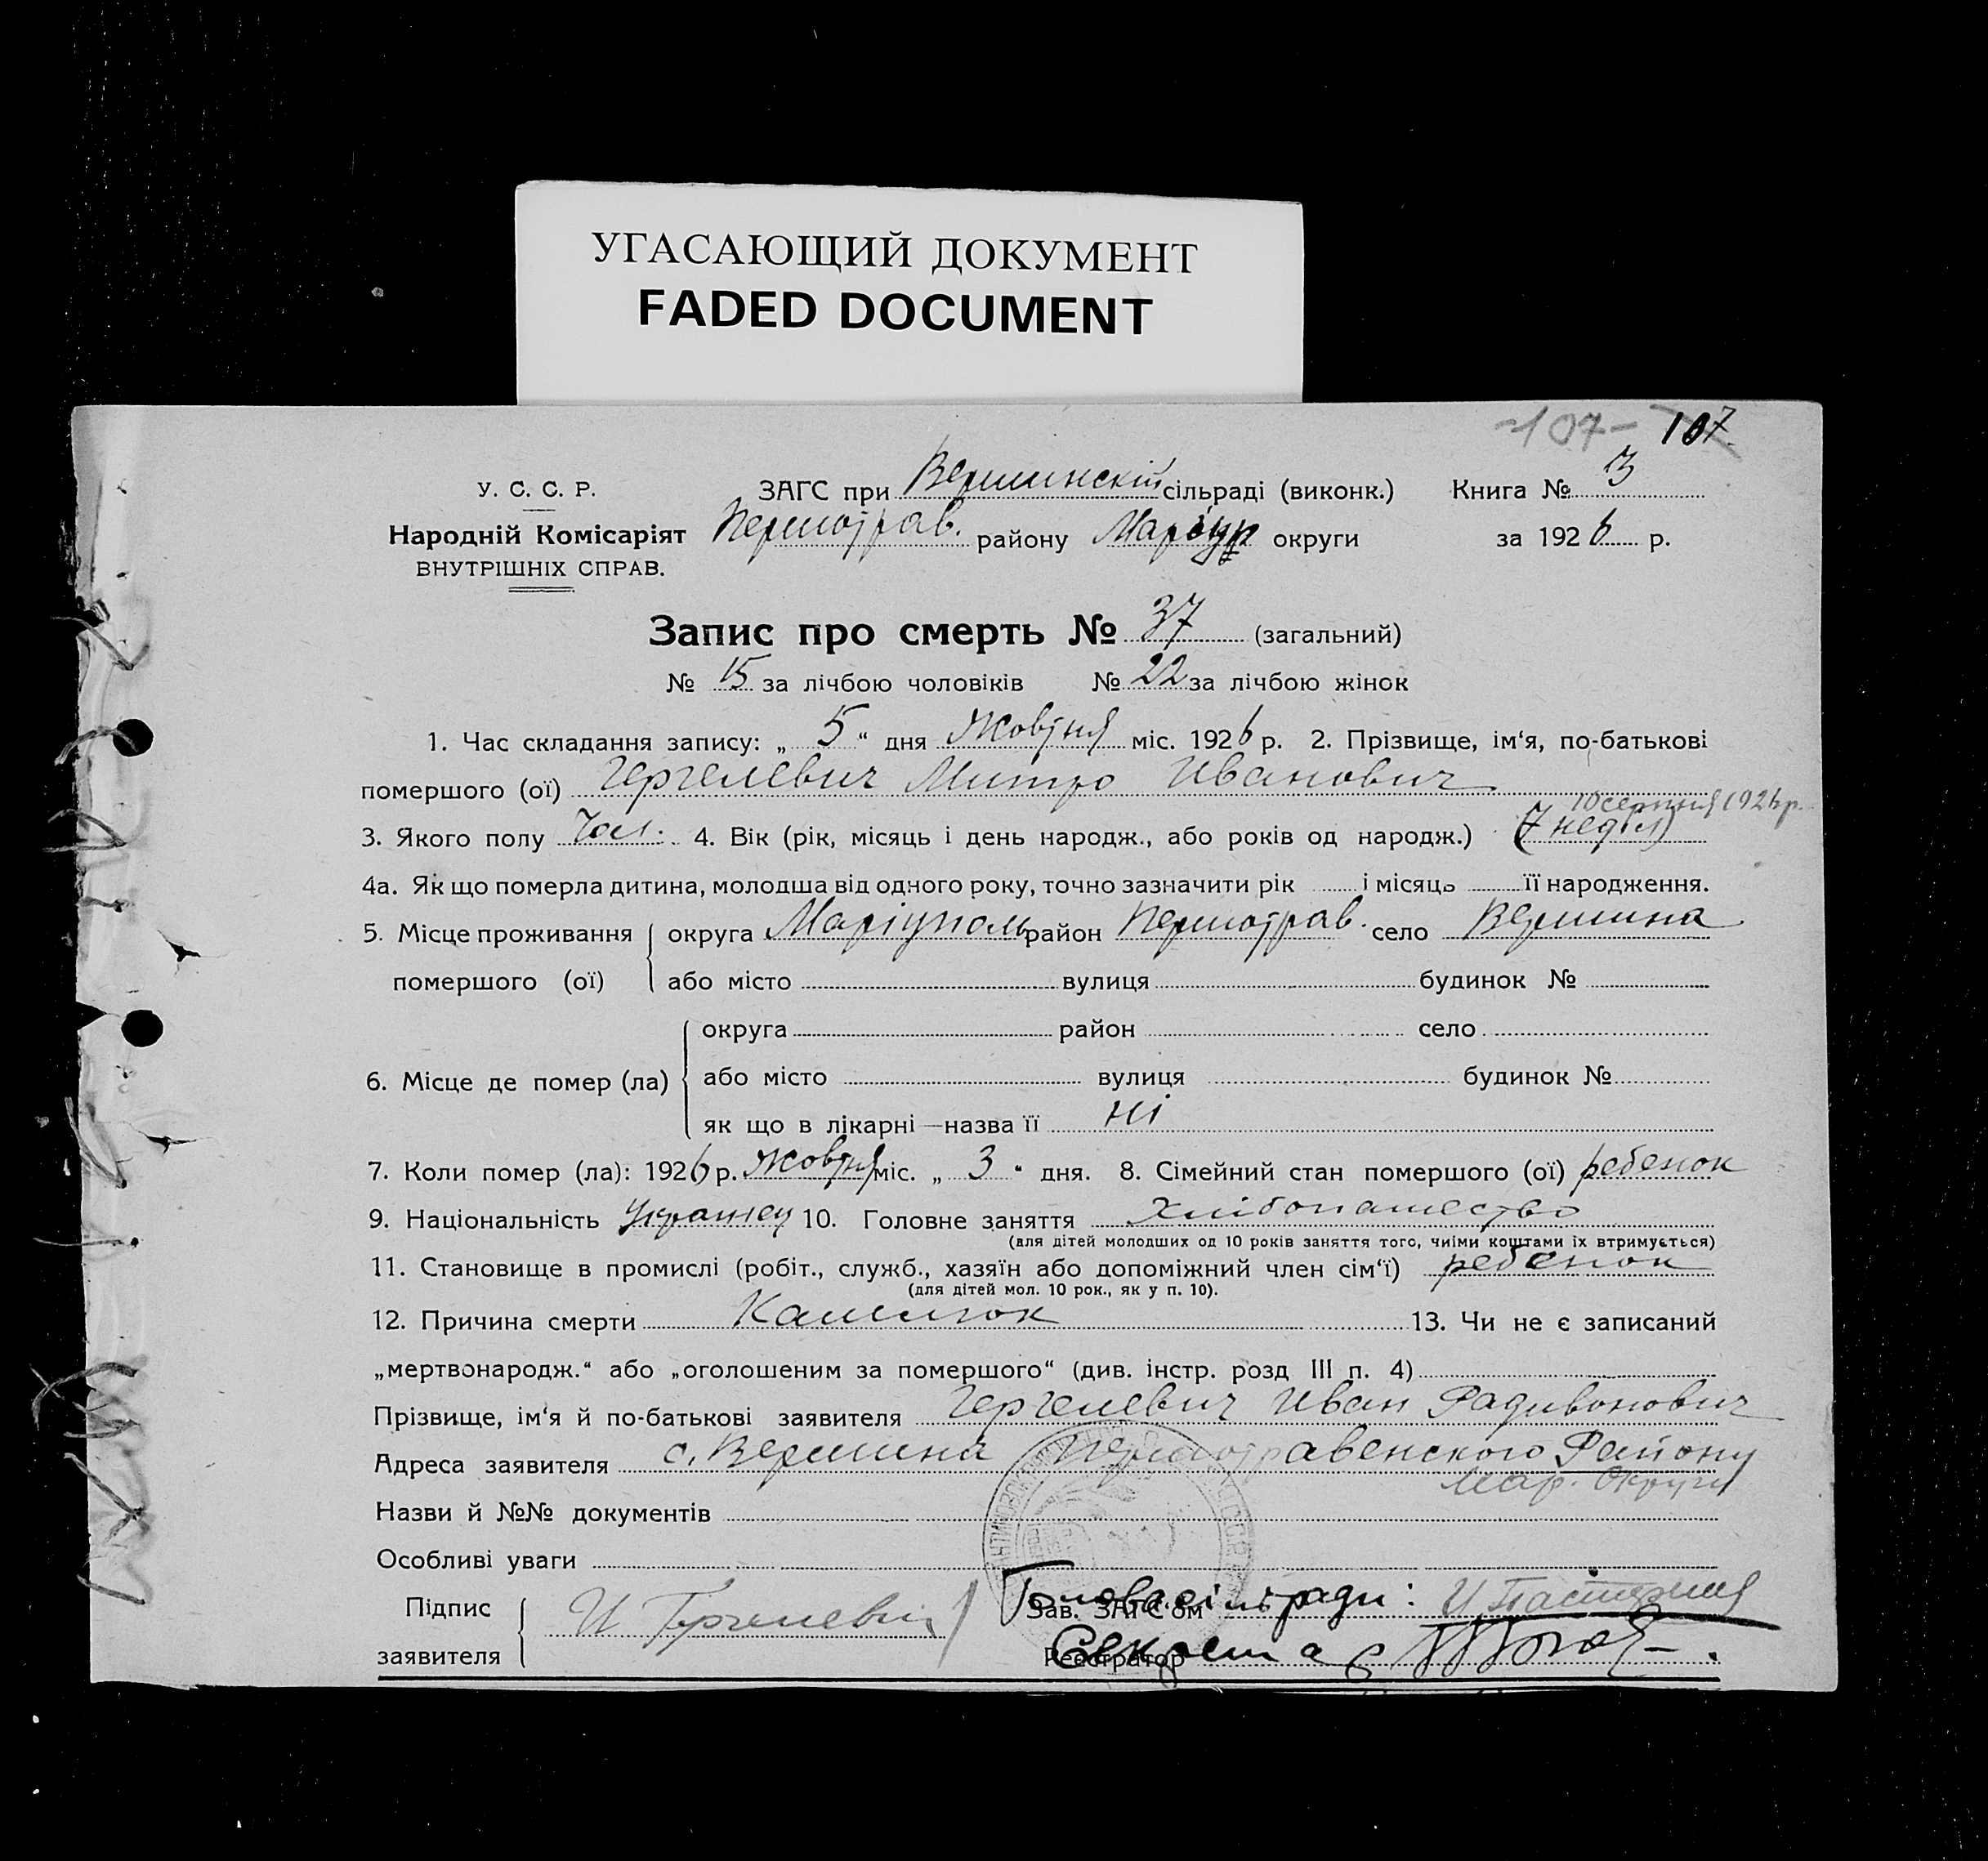 УГАСАЮЩИЙ ДОКУМЕНТ
FADED DOCUMENT
-107- 107
У. С. С. Р. ЗАГС при Вершинскій сільраді (виконк.) Книга № 3
Народній Комісаріят Першотрав. району Маріуп округи за 1926 р.
ВНУТРІШНІХ СПРАВ.
Запис про смерть № 37 (загальний)
№ 15 за лічбою чоловіків № 22 за лічбою жінок
1. Час складання запису: „ 5 “ дня Жовтня міс. 1926 р. 2. Прізвище, ім‘я, по-батькові
помершого (ої) Гергелевич Митро Иванович
10 серпня 1926 р.
3. Якого полу Чол. 4. Вік (рік, місяць і день народж., або років од народж.) (7 неділ)
4а. Як що померла дитина, молодша від одного року, точно зазначити рік і місяць її народження.
5. Місце проживання округа Маріуполь район Першотрав. село Вершина
помершого (ої) або місто вулиця будинок №
округа район село
6. Місце де помер (ла) або місто вулиця будинок №
як що в лікарні—назва її ні
7. Коли помер (ла): 1926 р. Жовтня міс. „ 3 “ дня. 8. Сімейний стан помершого (ої) ребенок
9. Національність Украінец 10. Головне заняття Хлібопашество
(для дітей молодших од 10 років заняття того, чиїми коштами їх втримується)
11. Становище в промислі (робіт., служб., хазяїн або допоміжний член сім‘ї) ребенок
(для дітей мол. 10 рок., як у п. 10).
12. Причина смерти Кашлюк 13. Чи не є записаний
„мертвонародж.“ або „оголошеним за помершого“ (див. інстр. розд III п. 4)
Прізвище, ім‘я й по-батькові заявителя Гергелевич Иван Радивонович
Адреса заявителя с. Вершина Першотравенского Району
Мар. Округи
Назви й №№ документів
Особливі уваги
Підпис И Гергелевич Зав. ЗАГС‘ом Голова сільради: И
заявителя Реєстратор Секретар